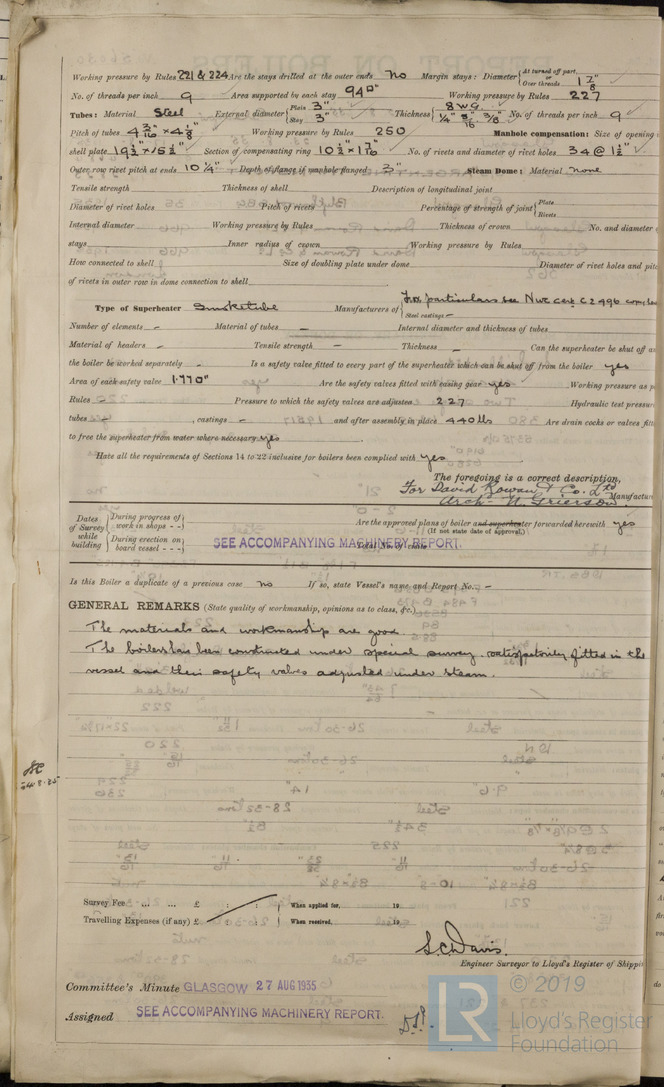 Working pressure by Rules 221 & 224 Are the stays drilled at the outer ends No Margin stays: Diameter { At turned off part, or Over threads 1 7/8"
No. of threads per inch 9 Area supported by each stay 94□" Working pressure by Rules 227
Tubes: Material Steel External diameter { Plain 3" Stay 3" Thickness { 8 W.G. 1/4" 5/16" 3/8" No. of threads per inch 9
Pitch of tubes 4 3/16" × 4 1/8" Working pressure by Rules 250 Manhole compensation: Size of opening
shell plate 19 1/2" × 15 1/2" Section of compensating ring No. of rivets and diameter of rivet holes 34 @ 1 1/2"
Outer row rivet pitch at ends 10 1/4" Depth of flange if manhole flanged 3" Steam Dome: Material none
Tensile strength Thickness of shell Description of longitudinal joint
Diameter of rivet holes Pitch of rivets Percentage of strength of joint { Plate Rivets
Internal diameter Working pressure by Rules Thickness of crown No. and diameter
stays Inner radius of crown Working pressure by Rules
How connected to shell Size of doubling plate under dome Diameter of rivet holes and
of rivets in outer row in dome connection to shell
Type of Superheater Smoketube Manufacturers of { For particulars see Nwc cert C2496 Steel castings -
Number of elements - Material of tubes - Internal diameter and thickness of tubes
Material of headers - Tensile strength - Thickness - Can the superheater be shut off
the boiler be worked separately - Is a safety valve fitted to every part of the superheater which can be shut off from the boiler yes
Area of each safety valve 1.770" Are the safety valves fitted with easing gear yes Working pressure as
Rules - Pressure to which the safety valves are adjusted 227 Hydraulic test pressure
tubes - , castings - and after assembly in place 440 lbs Are drain cocks or valves
to free the superheater from water where necessary yes
Have all the requirements of Sections 14 to 22 inclusive for boilers been complied with yes
The foregoing is a correct description,
For David Rowan & Co. Ltd
Arch. W. Grierson
Dates of Survey while building { During progress of work in shops - - During erection on board vessel - - -
Are the approved plans of boiler and superheater forwarded herewith yes
(If not state date of approval.)
SEE ACCOMPANYING MACHINERY REPORT.
Total No. of visits
Is this Boiler a duplicate of a previous case no If so, state Vessel's name and Report No. -
GENERAL REMARKS (State quality of workmanship, opinions as to class, &c.)
The materials and workmanship are good.
The boiler has been constructed under special survey, satisfactorily fitted in the
vessel and their safety valves adjusted under steam.
Survey Fee ... ... £ : : When applied for, 19
Travelling Expenses (if any) £ : : When received, 19
S. C. Davis
Engineer Surveyor to Lloyd's Register of
Committee's Minute GLASGOW 27 AUG 1935
Assigned SEE ACCOMPANYING MACHINERY REPORT.
LR
© 2019
Lloyd's Register
Foundation